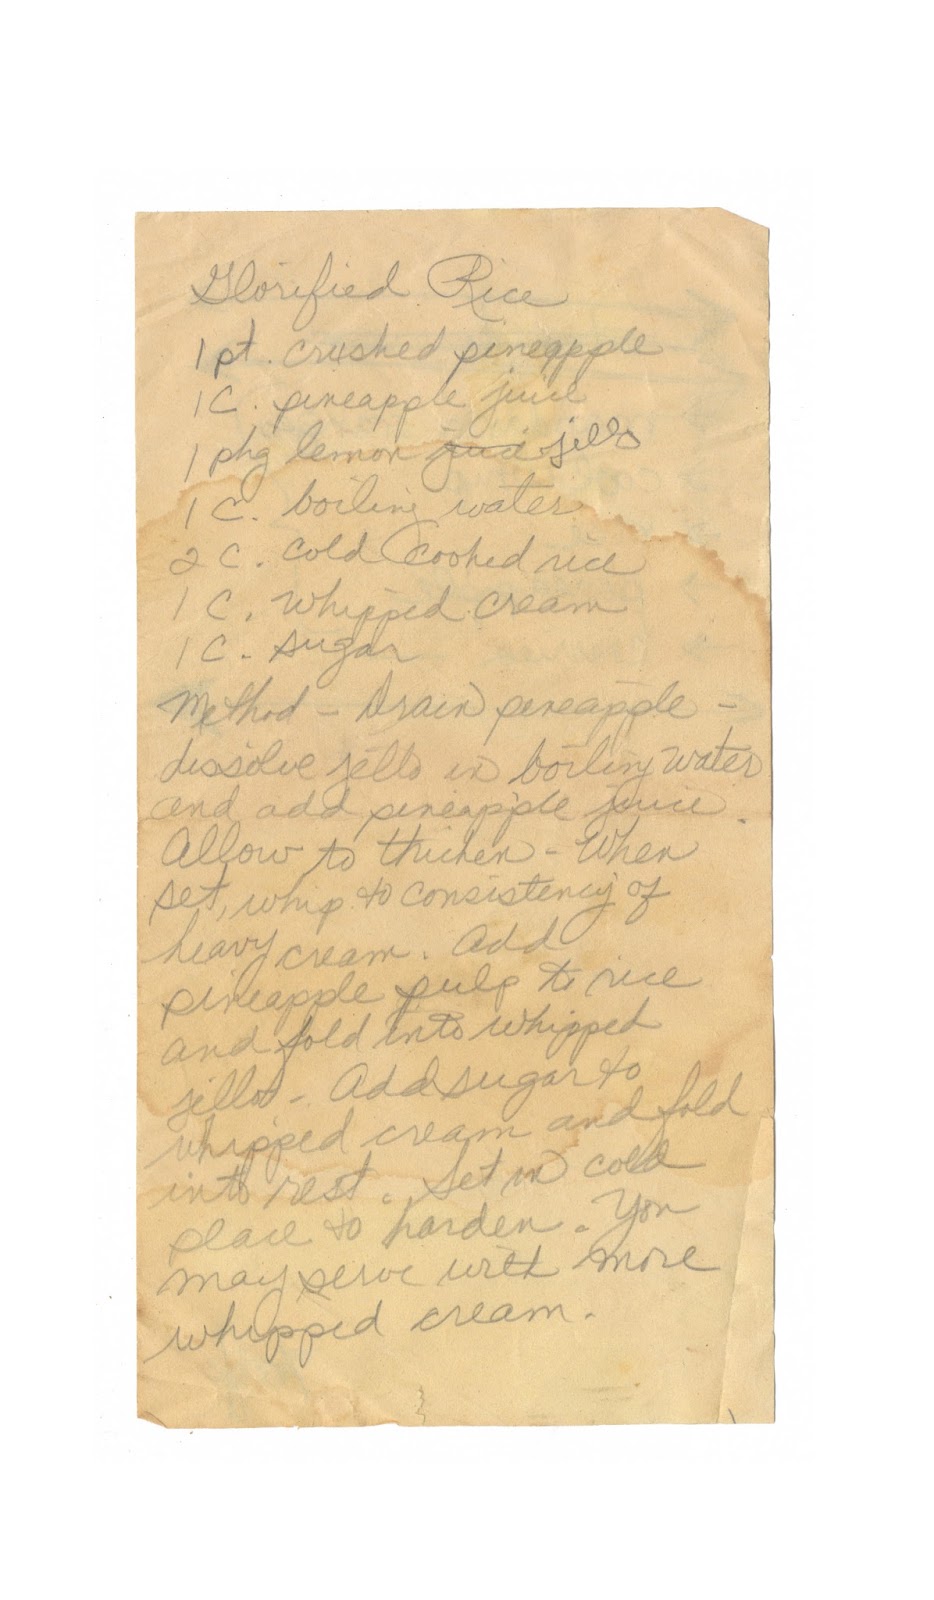 Glorified Rice
1 pt. crushed pineapple
1 C. pineapple juice
1 pkg lemon juice jello
1 C. boiling water
2 C. cold cooked rice
1 C. whipped cream
1 C. sugar
Method - Drain pineapple -
dissolve jello in boiling water
and add pineapple juice.
Allow to thicken - When
set, whip to consistency of
heavy cream. Add
pineapple pulp to rice
and fold into whipped
jello - Add sugar to
whipped cream and fold
into rest. Set in cold
place to harden. You
may serve with more
whipped cream.